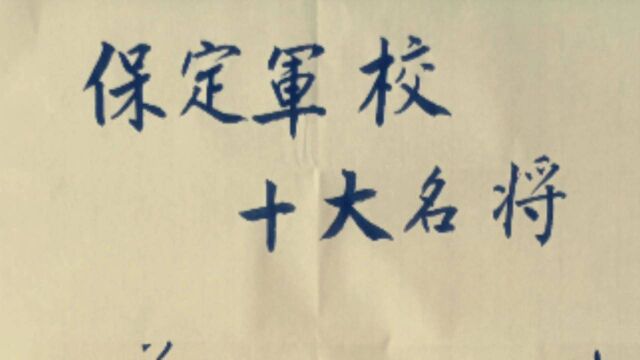 保定軍校
十大名将